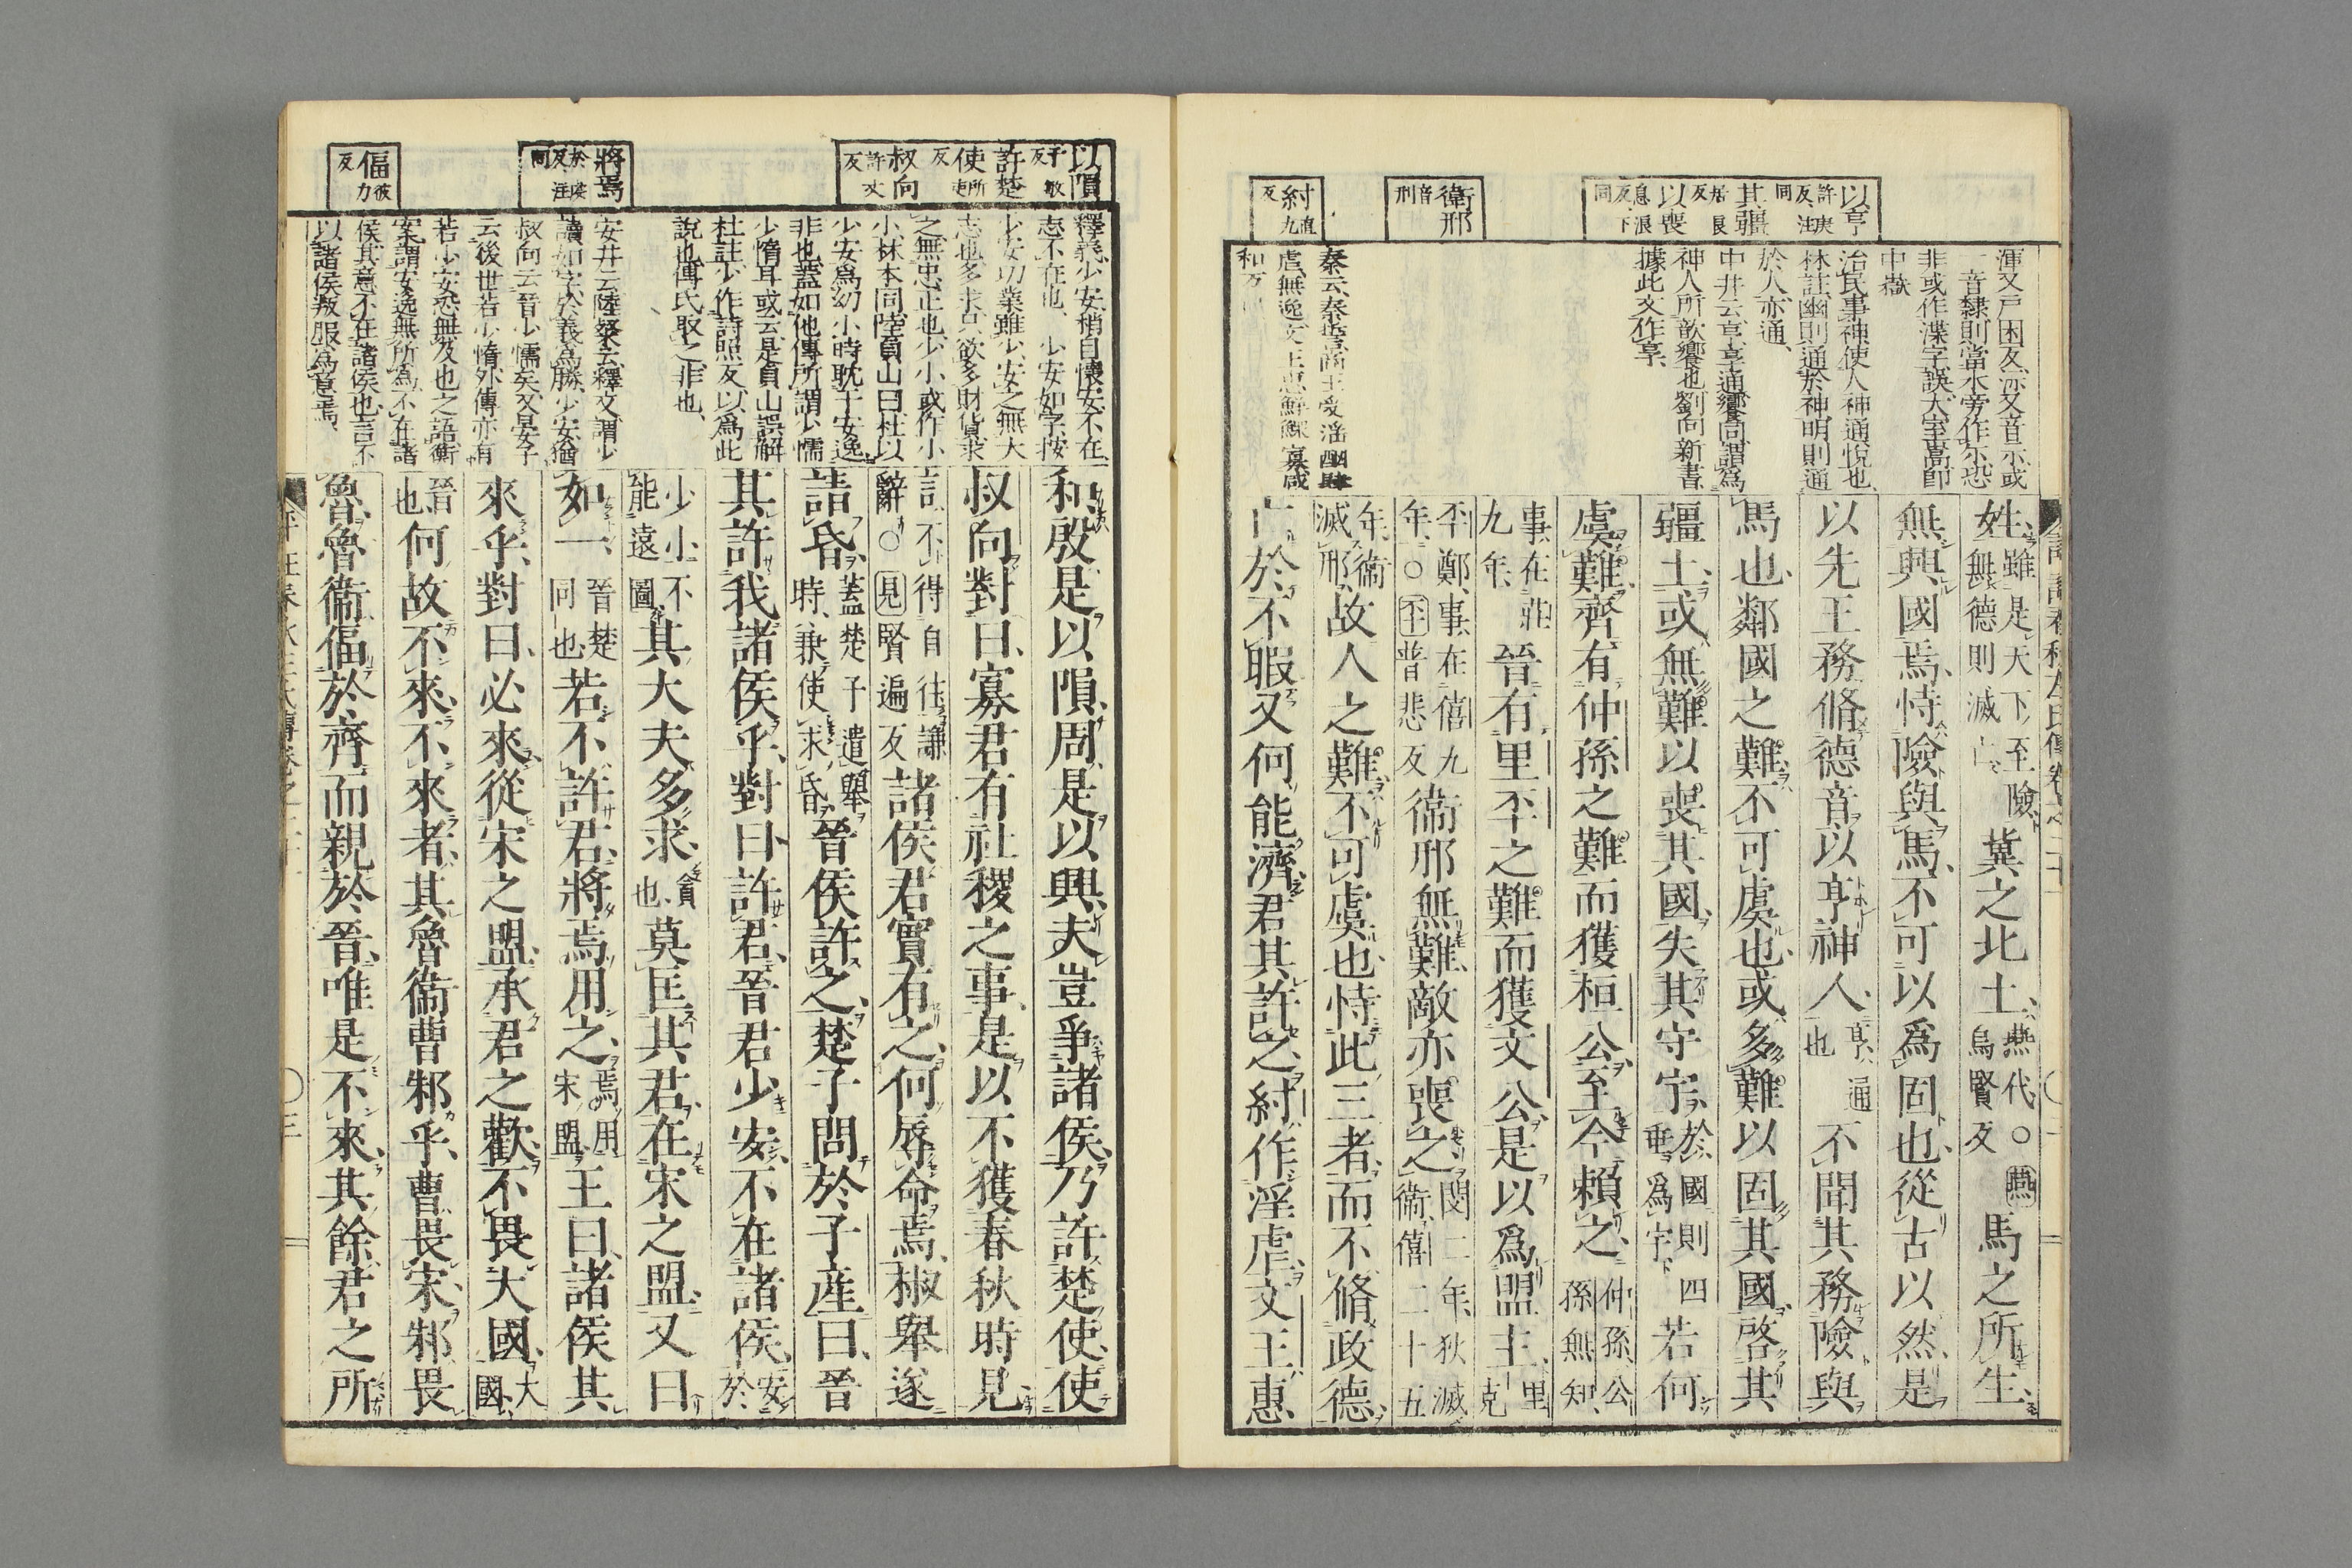 以亨 許庚反注同
其疆 居良反
以喪 息浪反下同
衛邢 音刑
紂 直九反
渾又戶困反亦又音示或
一音隸則當水旁作示恐
非或作渫字誤大室嵩即
中嶽
治民事神使人神通悅也
林註幽則通於神明則通
於人亦通
中井云亨享通饗同謂為
神人所歆饗也劉向新書
據此文作享
姓雖是天下至險無德則滅亡冀之北土燕代○燕烏賢反馬之所生
無興國焉恃險與馬不可以為固也從古以然是
以先王務脩德音以亨神人亨通也不聞其務險與
馬也鄰國之難不可虞也或多難以固其國啓其
疆土或無難以喪其國失其守宇於國則四垂為宇若何
虞難齊有仲孫之難而獲桓公至今賴之仲孫公孫無知
事在莊九年晉有里丕之難而獲文公是以為盟主里克
丕鄭事在僖九年○丕普悲反衛邢無難敵亦喪之閔二年狄滅衛僖二十五
年衛滅邢故人之難不可虞也恃此三者而不脩政德
亡於不暇又何能濟君其許之紂作淫虐文王惠
以隕 于敏反
許楚
使 所吏反
叔向 許丈反
將焉 於虔反注同
偪 彼力反
釋義少安稍自懷安不在
志不在也 少安如字按
少安功業雖少安之無大
志也多求只欲多財貨求
之無忠正也少小或作小
小林本同陸貞山曰杜以
少安為幼小時耽于安逸
非也蓋如他傳所謂少懦
少惰耳或云是貞山誤解
杜註少作詩照反以為此
說也傅氏取之非也
安井云陸粲云釋文謂少
讀如字於義為勝少安猶
叔向云晉少懦矣又晏子
云後世若少惰外傳亦有
若少安恐無及也之語衡
案謂安逸無所為不在諸
侯其意不在諸侯也言不
以諸侯叛服為意焉
和殷是以隕周是以興夫豈爭諸侯乃許楚使使
叔向對曰寡君有社稷之事是以不獲春秋時見
言不得自往謙辭○見賢遍反諸侯君實有之何辱命焉椒舉遂
請昏蓋楚子遣舉時兼使求昏晉侯許之楚子問於子產曰晉
其許我諸侯乎對曰許君晉君少安不在諸侯安於
少小不能遠圖其大夫多求貪也莫匡其君在宋之盟又曰
如一晉楚同也若不許君將焉用之焉用宋盟王曰諸侯其
來乎對曰必來從宋之盟承君之歡不畏大國大國
晉也何故不來不來者其魯衛曹邾乎曹畏宋邾畏
魯魯衛偪於齊而親於晉唯是不來其餘君之所